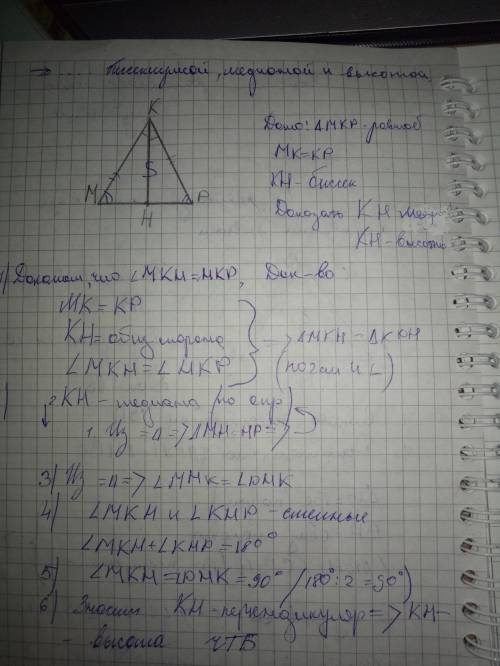 → ... биссектрисой, медианой и высотой.
K
S
M
P
H
Дано: ΔMKP-равноб
MK=KP
KH-биссек
Доказать KH
KH-высота
1) Докажем, что ∠MKH=HKP, Док-во:
MK=KP
KH=общ. сторона
∠MKH=∠HKP
→ ΔMKH=ΔKPH
(по 2 сторонам и ∠)
2. KH - медиана (по опр)
1. Из =Δ=>MH=HP=>
3) Из =Δ=>∠MHK=∠PHK
4) ∠MKH и ∠KHP-смежные
∠MKH+∠KHP=180°
5) ∠MKH=∠PHK=90° (180°:2=90°)
6) Значит KH-перпендикуляр=>KH-
- высота ЧТД